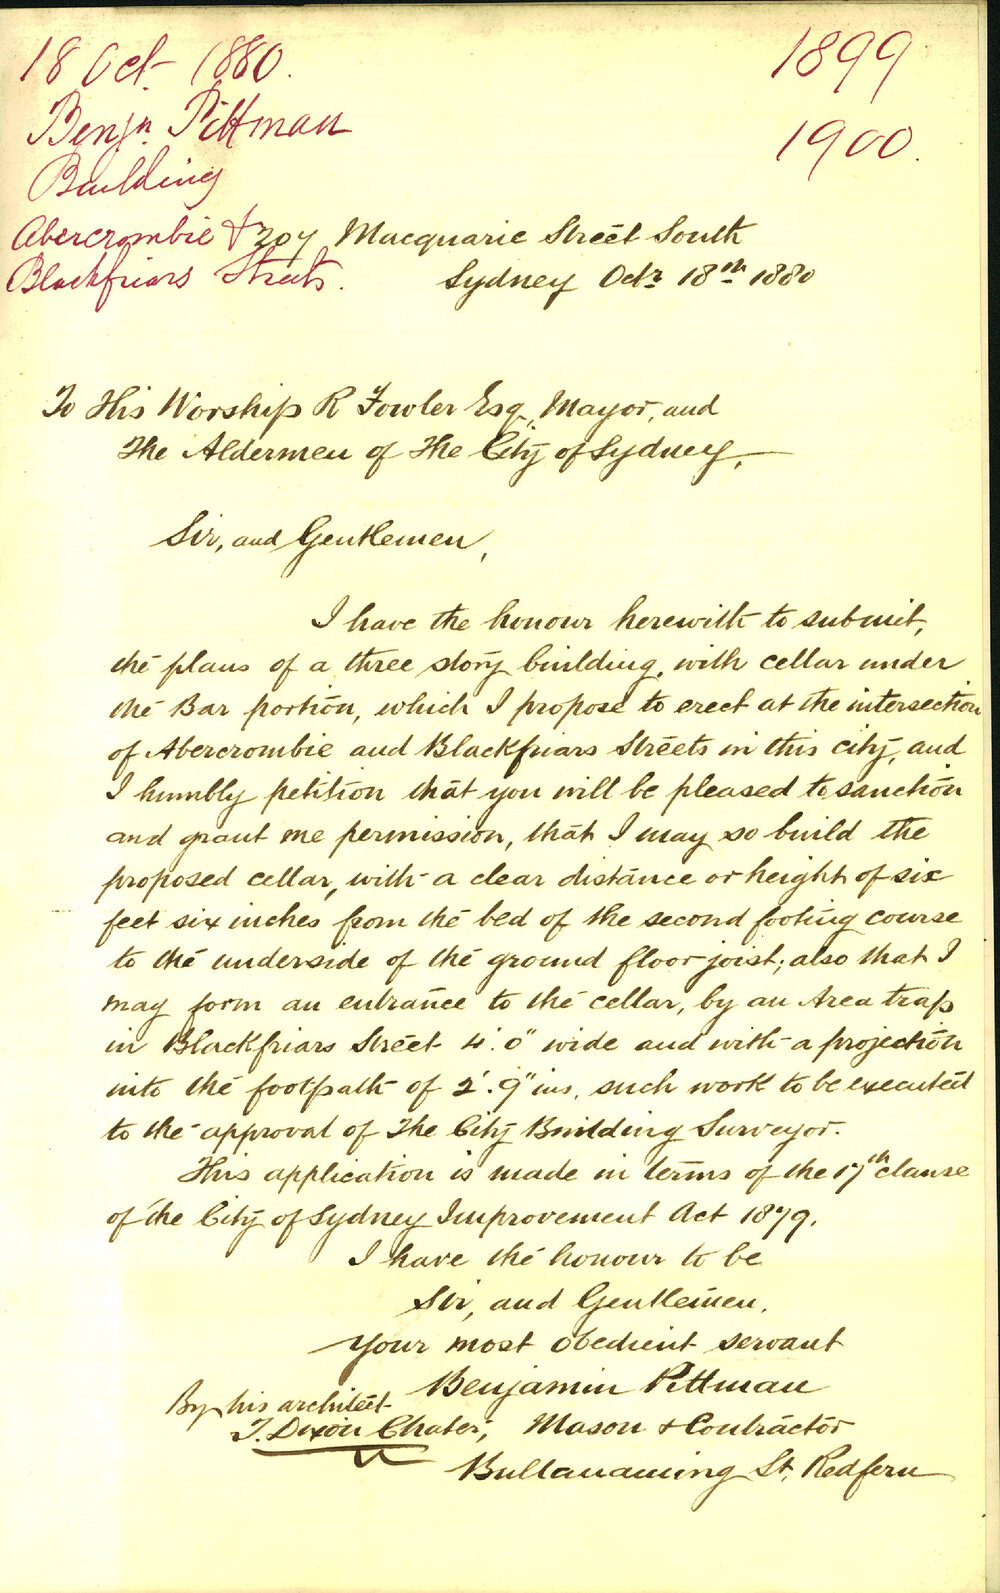 18 Oct 1880.
1899
1900.
Benjn. Pittman
Building
Abercrombie &
Blackfriars Streets.
207 Macquarie Street South
Sydney Octr 18th 1880
To His Worship R Fowler Esq, Mayor, and
The Aldermen of The City of Sydney,
Sir, and Gentlemen,
I have the honour herewith to submit,
the plans of a three story building, with cellar under
the Bar portion, which I propose to erect at the intersection
of Abercrombie and Blackfriars Streets in this city, and
I humbly petition that you will be pleased to sanction
and grant me permission, that I may so build the
proposed cellar, with a clear distance or height of six
feet six inches from the bed of the second footing course
to the underside of the ground floor joist; also that I
may form an entrance to the cellar, by an Area trap
in Blackfriars Street 4'.0" wide and with a projection
into the footpath of 2'.9" ins, such work to be executed
to the approval of The City Building Surveyor.
This application is made in terms of the 17th clause
of the City of Sydney Improvement Act 1879.
I have the honour to be
Sir, and Gentlemen,
Your most obedient servant
Benjamin Pittman
By his architect
T. Dixon Chater, Mason & Contractor
Bullanaming St, Redfern